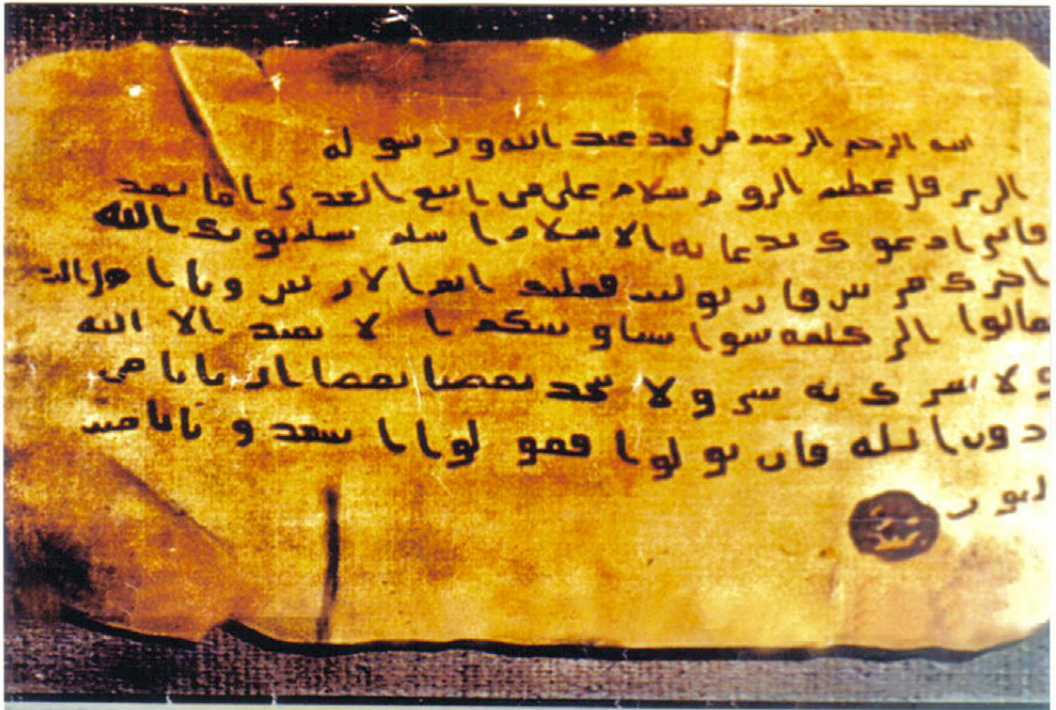 بسم الله الرحمن الرحيم من محمد عبد الله ورسوله
الى هرقل عظيم الروم سلام على من اتبع الهدى اما بعد
فانى ادعوك بدعاية الاسلام اسلم تسلم يوتك الله
اجرك مرتين فان توليت فعليك اثم الاريسين ويا اهل الكتاب
تعالوا الى كلمة سوا بيننا وبينكم الا نعبد الا الله
ولا نشرك به شى ولا يتخذ بعضنا بعضا اربابا من
دون الله فان تولوا فقولوا اشهدو بانا مسلمون